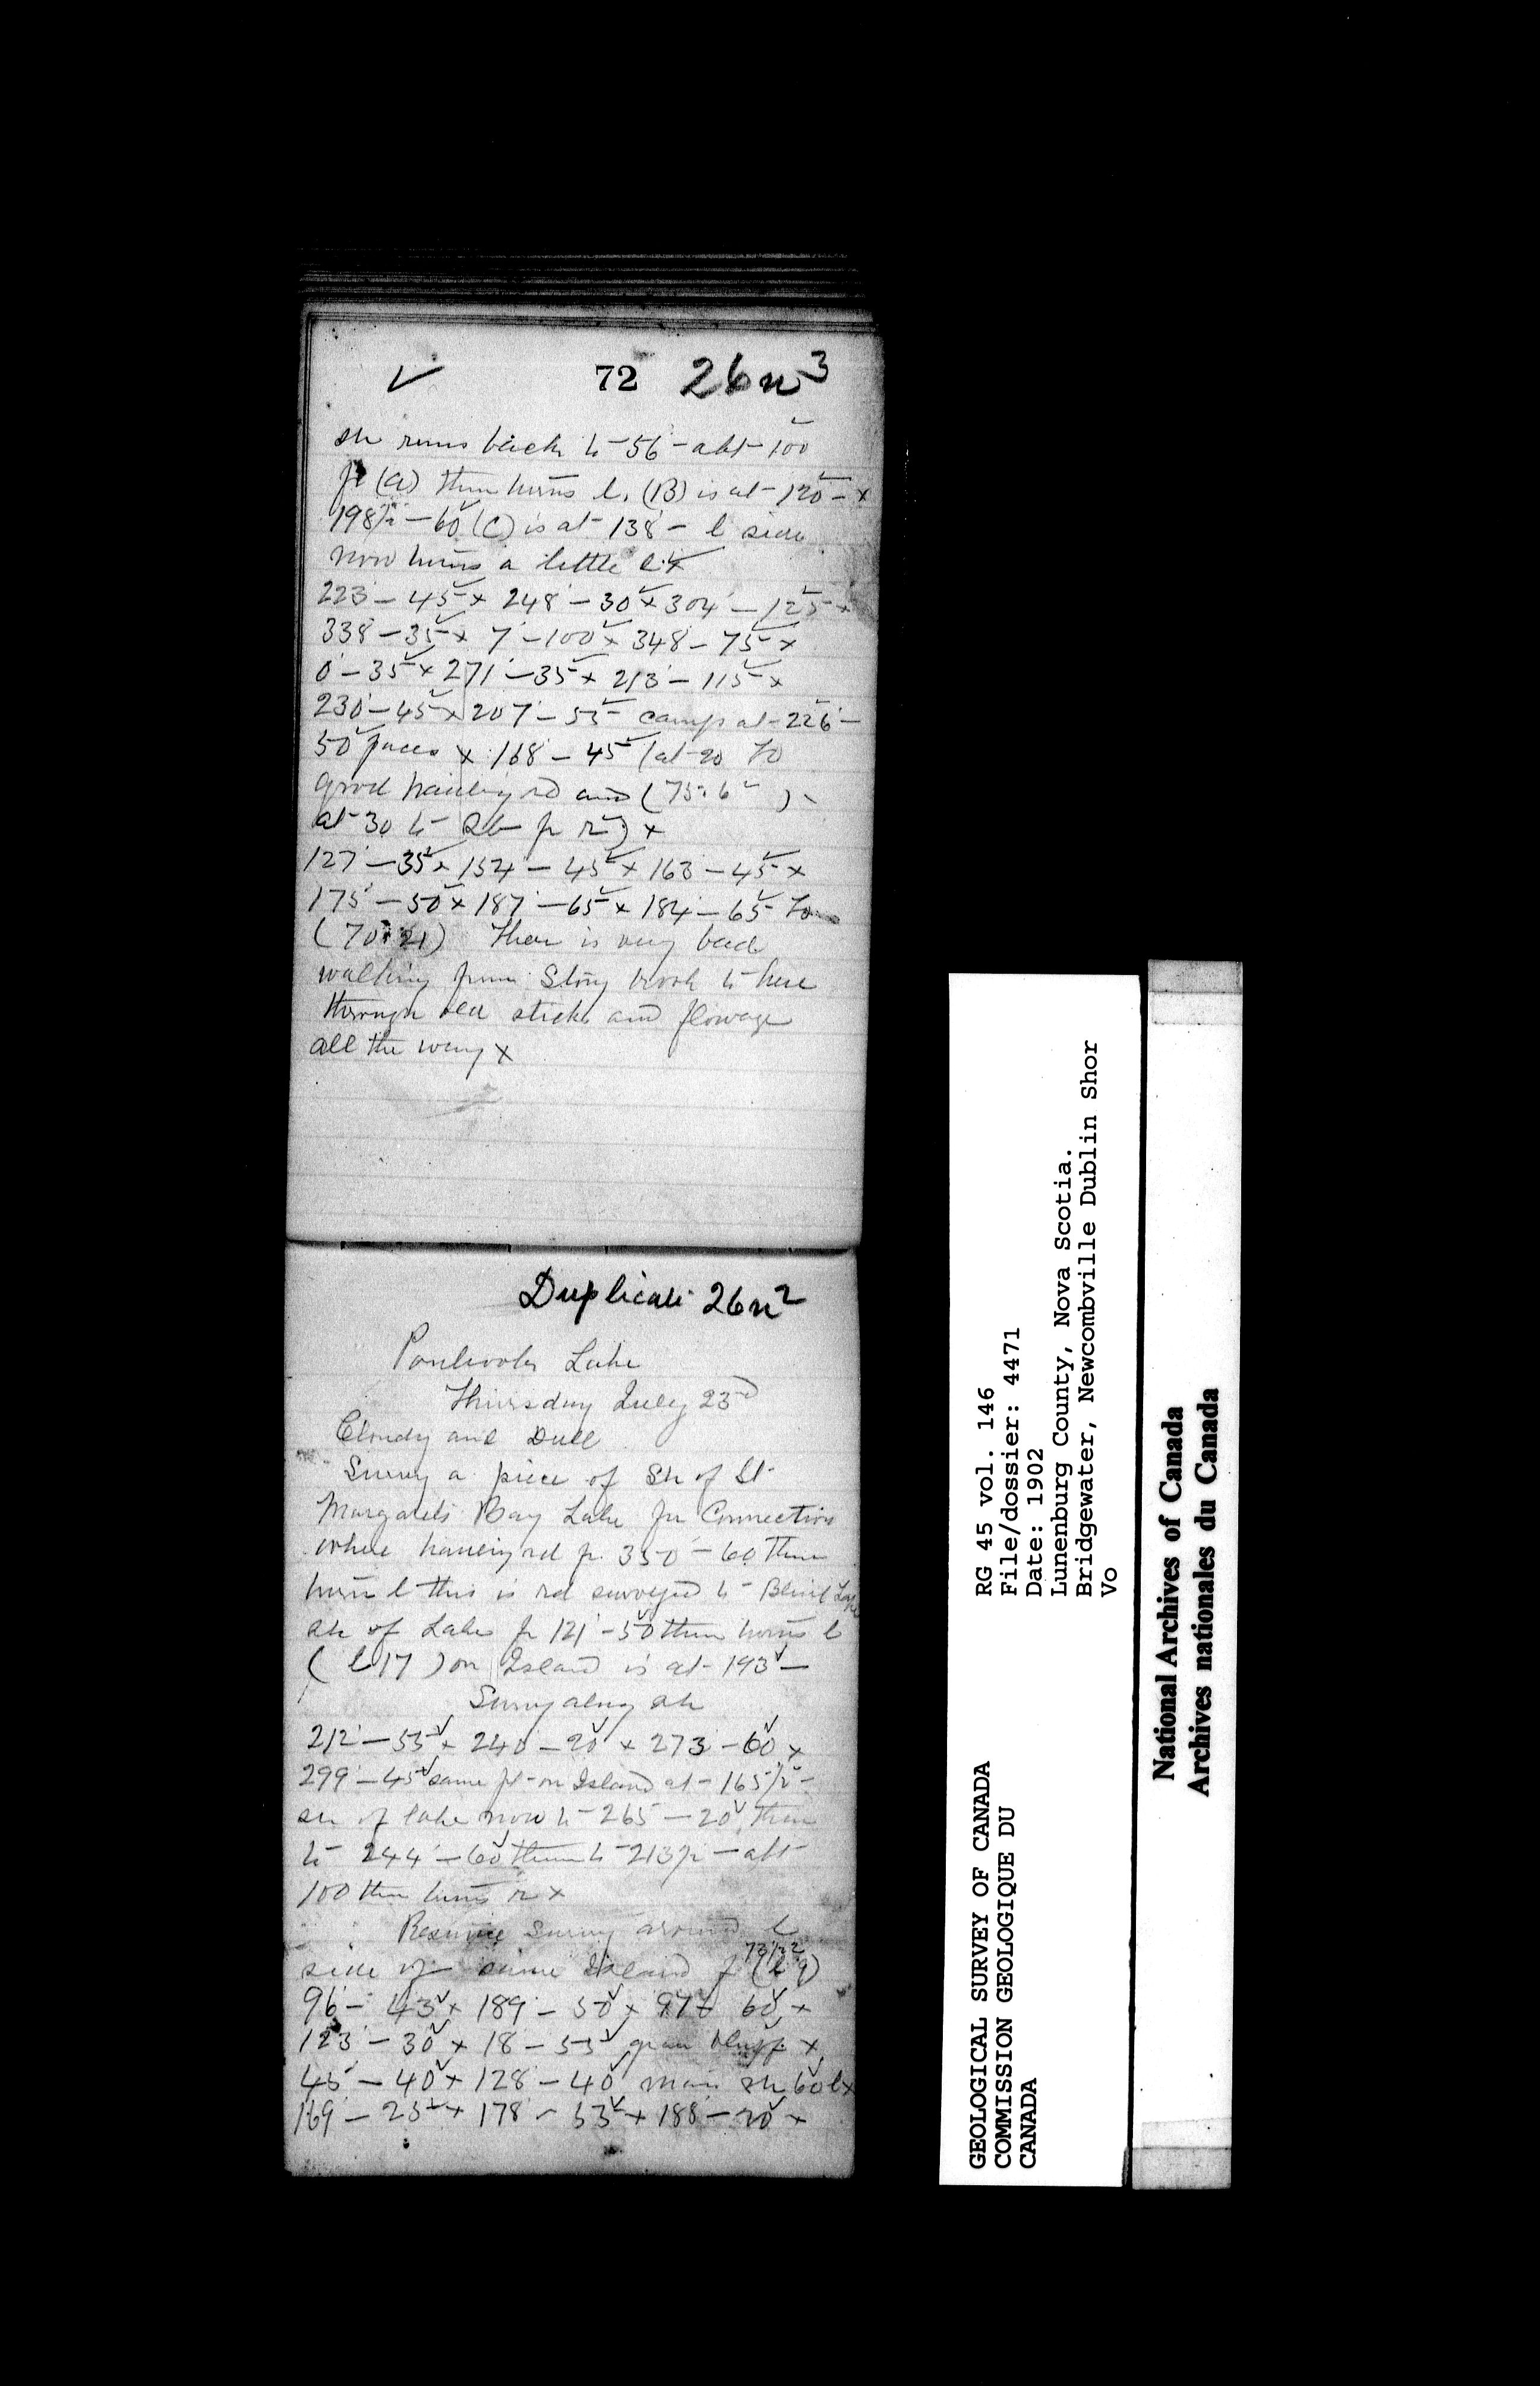 ✓ 72 26n³
sh runs back to 56 - abt 100
pt (a) then turns l. (B) is at - 120 - x
198½ - 60 (C) is at - 138 - l side
now turns a little l. x
223 - 45 x 248 - 30 x 304 - 125 x
338 - 35 x 7 - 100 x 348 - 75 x
0 - 35 x 271 - 35 x 213 - 115 x
230 - 45 x 207 - 55 camp at - 226 -
50 paces x 168 - 45 (at 20 to
good hauling rd and (75.6 )
at 30 to r) x
127 - 35 x 154 - 45 x 163 - 45 x
175 - 50 x 187 - 65 x 184 - 65 to
(70.21) Ther is very bad
walking from Stony brook to here
through old sticks and flowage
all the way x
Duplicate 26n²
Lake
Thursday July 23rd
Cloudy and Dull
Survey a piece of Sh of St
Margarets Bay Lake for Connection
where hauling rd 350 - 60 then
turn l this is rd surveyed to Blind Lake
sh of Lake 121 - 50 then turns l
(l 17) on Island is at - 193 -
Survey along sh
212 - 55 x 240 - 20 x 273 - 60 x
299 - 45 same pt on Island at - 165½ -
sh of lake now to 265 - 20 then
to 244 - 60 then to 213½ - abt
100 then turns r x
Resume Survey around l
side of same Island (l 9)
96 - 43 x 189 - 50 x 97 60 x
123 - 30 x 18 - 55 gran bluff x
45 - 40 x 128 - 40 main sh 60 l x
169 - 25 x 178 - 55 x 188 - 20 x
GEOLOGICAL SURVEY OF CANADA
COMMISSION GEOLOGIQUE DU
CANADA
RG 45 vol. 146
File/dossier: 4471
Date: 1902
Lunenburg County, Nova Scotia.
Bridgewater, Newcombville Dublin Shor
Vo
National Archives of Canada
Archives nationales du Canada